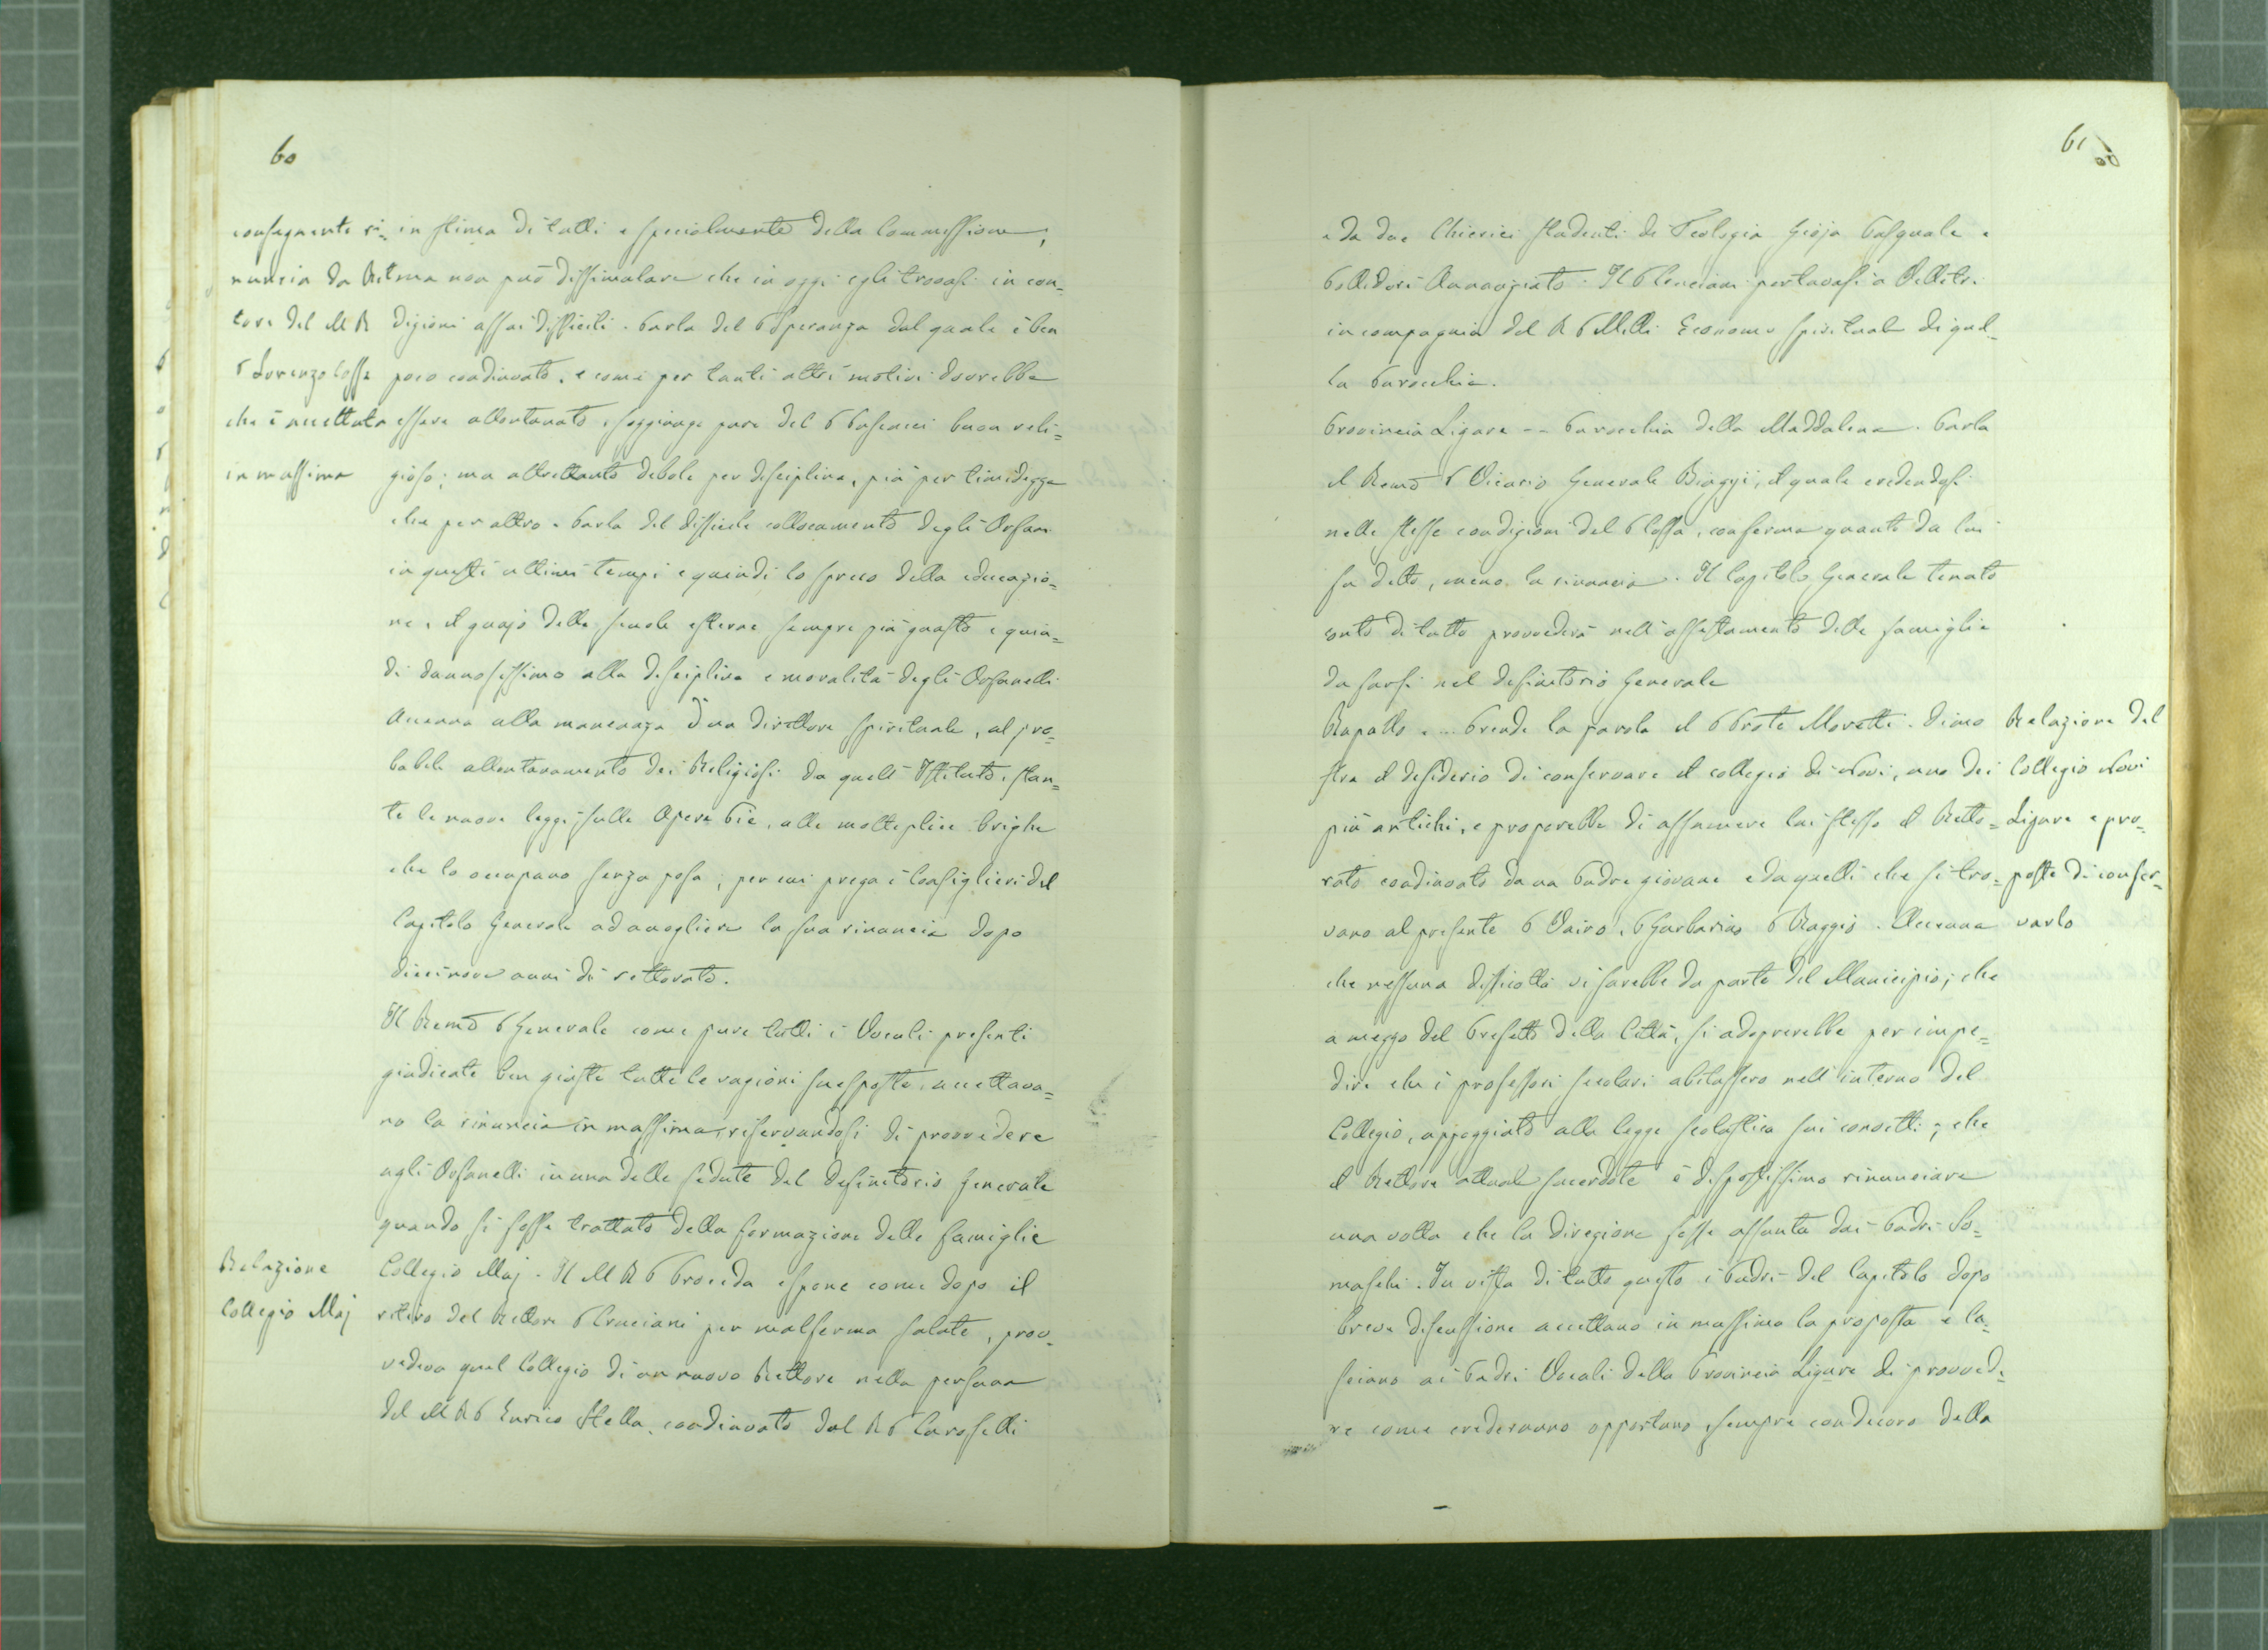 60
conseguente ri=
nuncia da Ret
tore del M R
P Lorenzo Cossa
che è accettata
in massima
in stima di tutti e specialmente della Commissione;
ma non può dissimulare che in oggi egli trovasi in con=
dizioni assai difficili. Parla del P Speranza dal quale è ben
poco coadiuvato, e come per tanti altri motivi dovrebbe
essere allontanato, soggiunge pure del P buon reli=
gioso; ma altrettanto debole per disciplina, più per timidezza
che per altro. Parla del difficile collocamento degli Orfani
in questi ultimi tempi e quindi lo spreco della educazio=
ne, il guajo delle scuole esterne sempre più guasto e quin=
di dannosissimo alla disciplina e moralità degli Orfanelli
Accenna alla mancanza d'un Direttore spirituale, al pro=
babile allontanamento dei Religiosi da quell'Istituto, stan=
te le nuove leggi sulle Opere Pie, alle molteplice brighe
che lo occupano senza posa; per cui prega i Consiglieri del
Capitolo Generale ad accogliere la sua rinuncia dopo
diecinove anni di rettorato.
Il Remo P Generale come pure tutti i Vocali presenti
giudicate ben giuste tutte le ragioni suesposte, accettava=
no la rinuncia in massima, riservandosi di provvedere
agli Orfanelli in una delle sedute del Definitorio Generale
quando si fosse trattato della formazione delle famiglie
Relazione
Collegio Maj
Collegio Maj. Il M R P Procida espone come dopo il
ritiro del Rettore P Cruciani per malferma salute, prov=
vedeva quel Collegio di un nuovo Rettore nella persona
del M R P Enrico Stella, coadiuvato dal R P Caroselli
61
60
e da due Chierici studenti di Teologia Gioja Pasquale e
Pollidori Annunziato. Il P Cruciani portavasi a Velletri
in compagnia del R P Melli Economo spirituale di quel=
la Parocchia.
Provincia Ligure -- Parocchia della Maddalena. Parla
il Remo P Vicario Generale Biaggi, il quale credendosi
nelle stesse condizioni del P Cossa, conferma quanto da lui
fu detto, meno la rinuncia. Il Capitolo Generale tenuto
conto di tutto provvederà nell'assestamento delle famiglie
da farsi nel definitorio Generale
Rapallo -... Prende la parola il P Prote Moretti. Dimo
stra il desiderio di conservare il collegio di Novi, uno dei
più antichi, e proporrebbe di assumere lui stesso il Retto=
rato coadiuvato da un Padre giovane e da quelli che si tro=
vano al presente P Vairo, P Garbarino P Raggio. Accenna
che nessuna difficoltà vi sarebbe da parte del Municipio; che
a mezzo del Prefetto della Città, si adoprerebbe per impe=
dire che i professori secolari abitassero nell'interno del
Collegio, appoggiato alla legge scolastica sui convitti; che
il Rettore attuale sacerdote è dispostissimo rinunciare
una volta che la direzione fosse assunta dai Padri So=
maschi. In vista di tutto questo i Padri del Capitolo dopo
breve discussione accettano in massima la proposta e la=
sciano ai Padri Vocali della Provincia Ligure di provvede
re come crederanno opportuno, sempre con decoro della
Relazione del
Collegio Novi
Ligure e pro=
poste di conser=
varlo